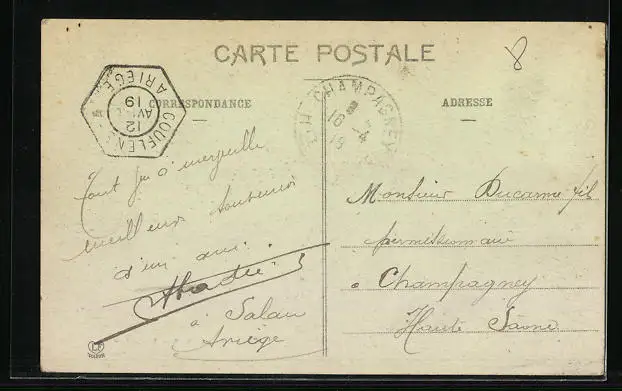 CARTE POSTALE
8
COUFLENS ARIEGE
12
AVRIL
19
CHAMPAGNEY
16 -4
19
CORRESPONDANCE
ADRESSE
Tout va à merveille
meilleurs souvenirs
d'un ami.
Abadie
à Salau
Ariège
Monsieur Ducarme fils
permissionnaire
à Champagney
Haute Saone